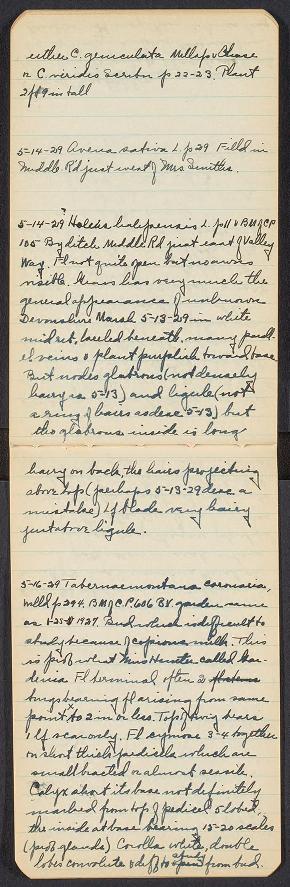 either C. geniculata Millsp & Chase
or C. viridis Scribn p 22-23. Plant
2 ft 9 in tall
5-14-29 Avena sativa L. p 29 Field in
Middle Rd just west of Mrs Smiths.
5-14-29 Holcus halepensis L. p 11 v BM of CP
105 By ditch Middle Rd just east of Valley
Way. Fl not quite open but no awns
visible. Grass has very much the
general appearance of unknown
Devonshire Marsh 5-13-29 in white
midrib, keeled beneath, many parall-
el veins & plant purplish toward base
But nodes glabrous (not densely
hairy as 5-13) and ligule (not
a ring of hairs as desc 5-13) but
tho glabrous inside is long
hairy on back, the hairs projecting
above top (perhaps 5-13-29 desc a
mistake) Lf blade very hairy
just above ligule.
5-16-29 Tabernaemontana coronaria,
Willd p 294. BM of CP 606 BV. garden same
as 1927. Bud which is difficult to
study because of copious milk. This
is prob what Miss Hunter called Gar-
denia Fl terminal often 2
twigs bearing fl arising from same
point 2 in or less. Top of twig bears
1 lf scar only. Fl cymose 3-4 together
on short thick pedicels which are
small bracted or almost sessile.
Calyx short its base not definitely
marked from top of pedicel 5 lobed,
the inside at base bearing 15-20 scales
(prob glands) Corolla white, double
lobes convolute & diff to study from bud.